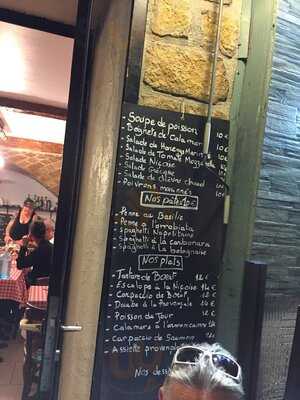 - Soupe de poisson 10€
- Beignets de Calamar 10€
- Salade de Harengs Marinés 10€
- Salade de Tomate Mozza 10€
- Salade Niçoise
- Salade Grecque
- Salade de chèvre chaud 10€
- Poivrons marinés
Nos pâtes 10€
- Penne au Basilic
- Penne à l'arrabiata
- Spaghetti Napolitaine
- Spaghetti à la carbonara
- Spaghetti à la bolognaise
Nos plats
- Tartare de Bœuf 12€
- Escalope à la Niçoise 14€
- Carpaccio de Bœuf 12€
- Daube à la Provençale
- Poisson du Jour
- Calamars à l'armoricaine
- Carpaccio de Saumon
- Assiette provençale
Nos